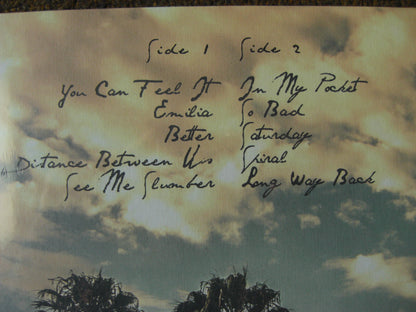 Side 1
You Can Feel It
Emilia
Better
A Distance Between Us
See Me Slumber
Side 2
In My Pocket
So Bad
Saturday
Spiral
Long Way Back